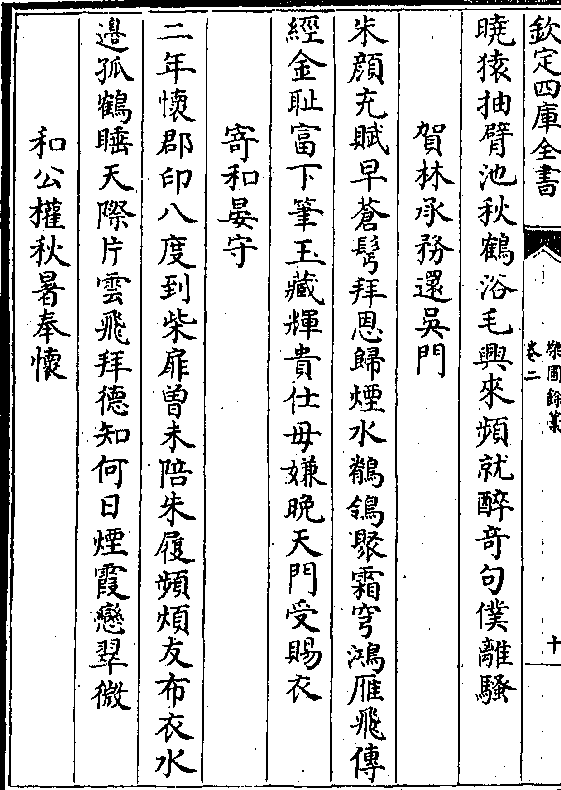 欽定四庫全書
樂圃餘藁
卷二
十
曉猿抽臂池秋鶴浴毛興來頻就醉奇句僕離騷
賀林承務還吳門
朱顔充賦早蒼髩拜恩歸煙水鶺鴒聚霜穹鴻雁飛傳
經金恥富下筆玉藏輝貴仕毋嫌晩天門受賜衣
寄和晏守
二年懷郡印八度到柴扉曽未陪朱履頻煩友布衣水
邉孤鶴睡天際片雲飛拜德知何日煙霞戀翠微
和公權秋暑奉懷